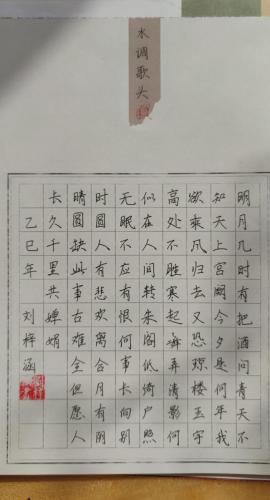 水调歌头
明月几时有把酒问青天不
知天上宫阙今夕是何年我
欲乘风归去又恐琼楼玉宇
高处不胜寒起舞弄清影何
似在人间转朱阁低绮户照
无眠不应有恨何事长向别
时圆人有悲欢离合月有阴
晴圆缺此事古难全但愿人
长久千里共婵娟
乙巳年刘梓涵